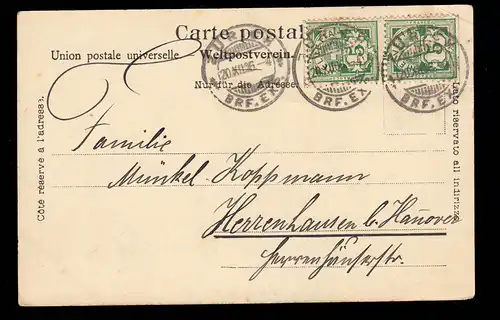 Carte postale
Union postale universelle Weltpostverein.
Nur für die Adresse.
Côté réservé à l'adresse.
lato riservato all indirizzo
BRF.EXP.
BRF.EXP.
BRF.EX
Familie
Münkel-Koppmann
Herrenhausen b. Hannover
Herrenhäuserstr.